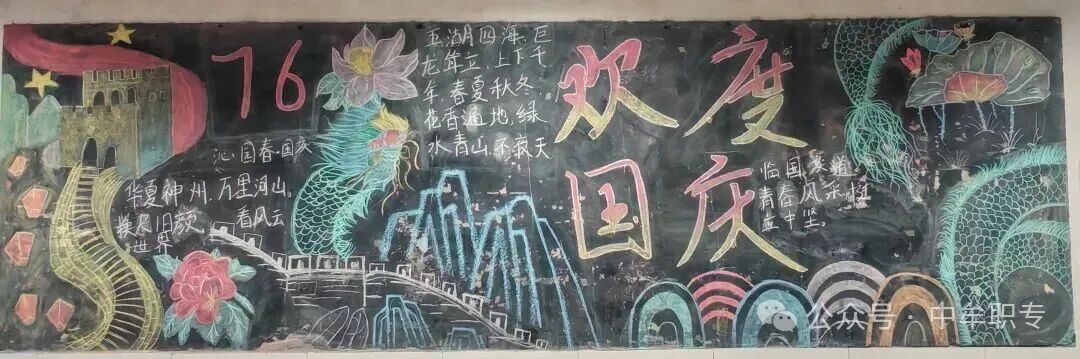 76
沁园春·国庆
华夏神州,万里河山,
换尽旧颜
看世界风云
五湖四海,巨
龙年立,上下千
年,春夏秋冬,
花香遍地,绿
水青山,不夜天
欢度
国庆
临国
青春风采
立中坚。
公众号·中牟职专